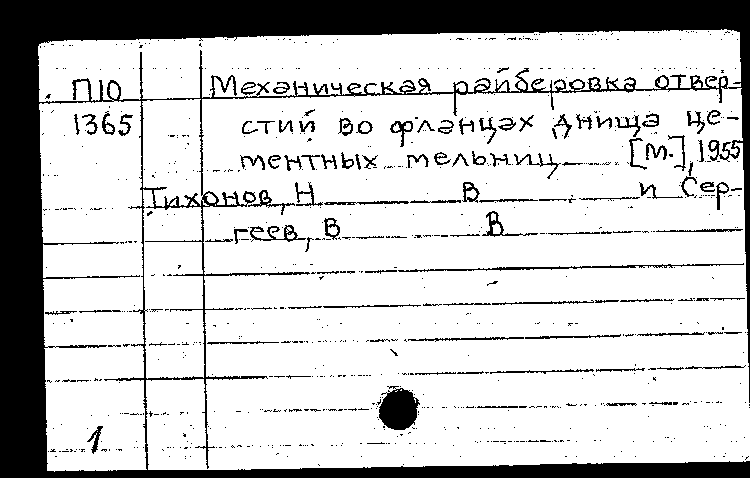 П10 Механическая райберовка отвер-
1365 стий во фланцах днища це-
ментных мельниц [М.], 1955
Тихонов, Н В и Сер-
геев, В В
1